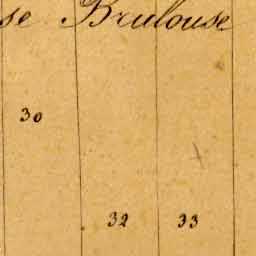 se Brulouse
30
32 33